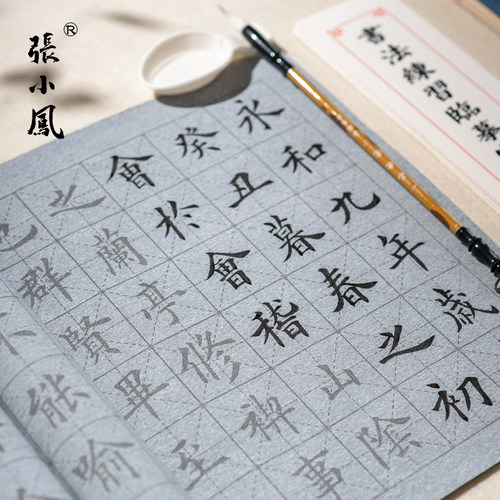 張小鳳®
書法練習臨摹
永和九年歲
癸丑暮春之初
會於會稽山陰
之蘭亭修禊事
群賢畢至
能喻